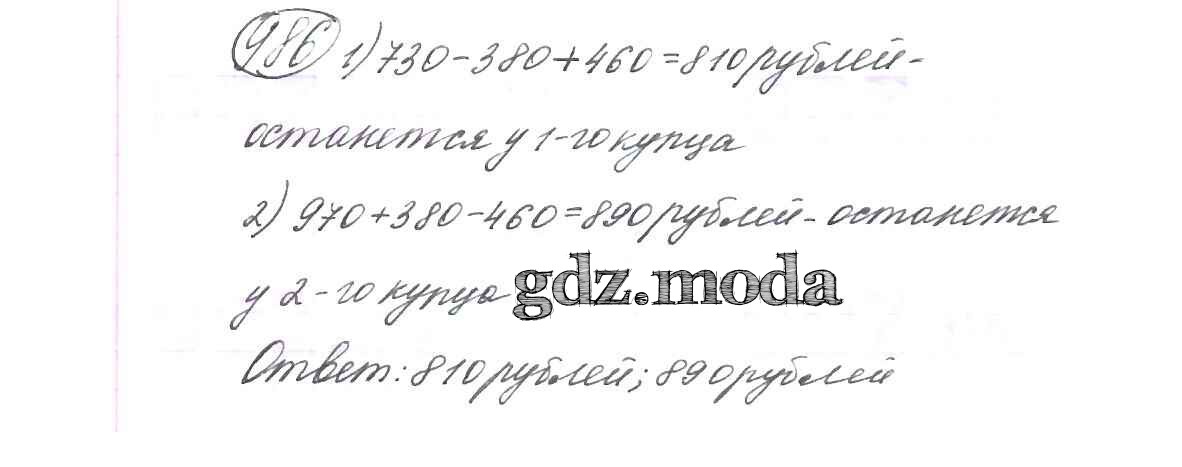 986 1) 730-380+460=810 рублей-
останется у 1-го купца
2) 970+380-460=890 рублей- останется
у 2-го купца gdz.moda
Ответ: 810 рублей; 890 рублей